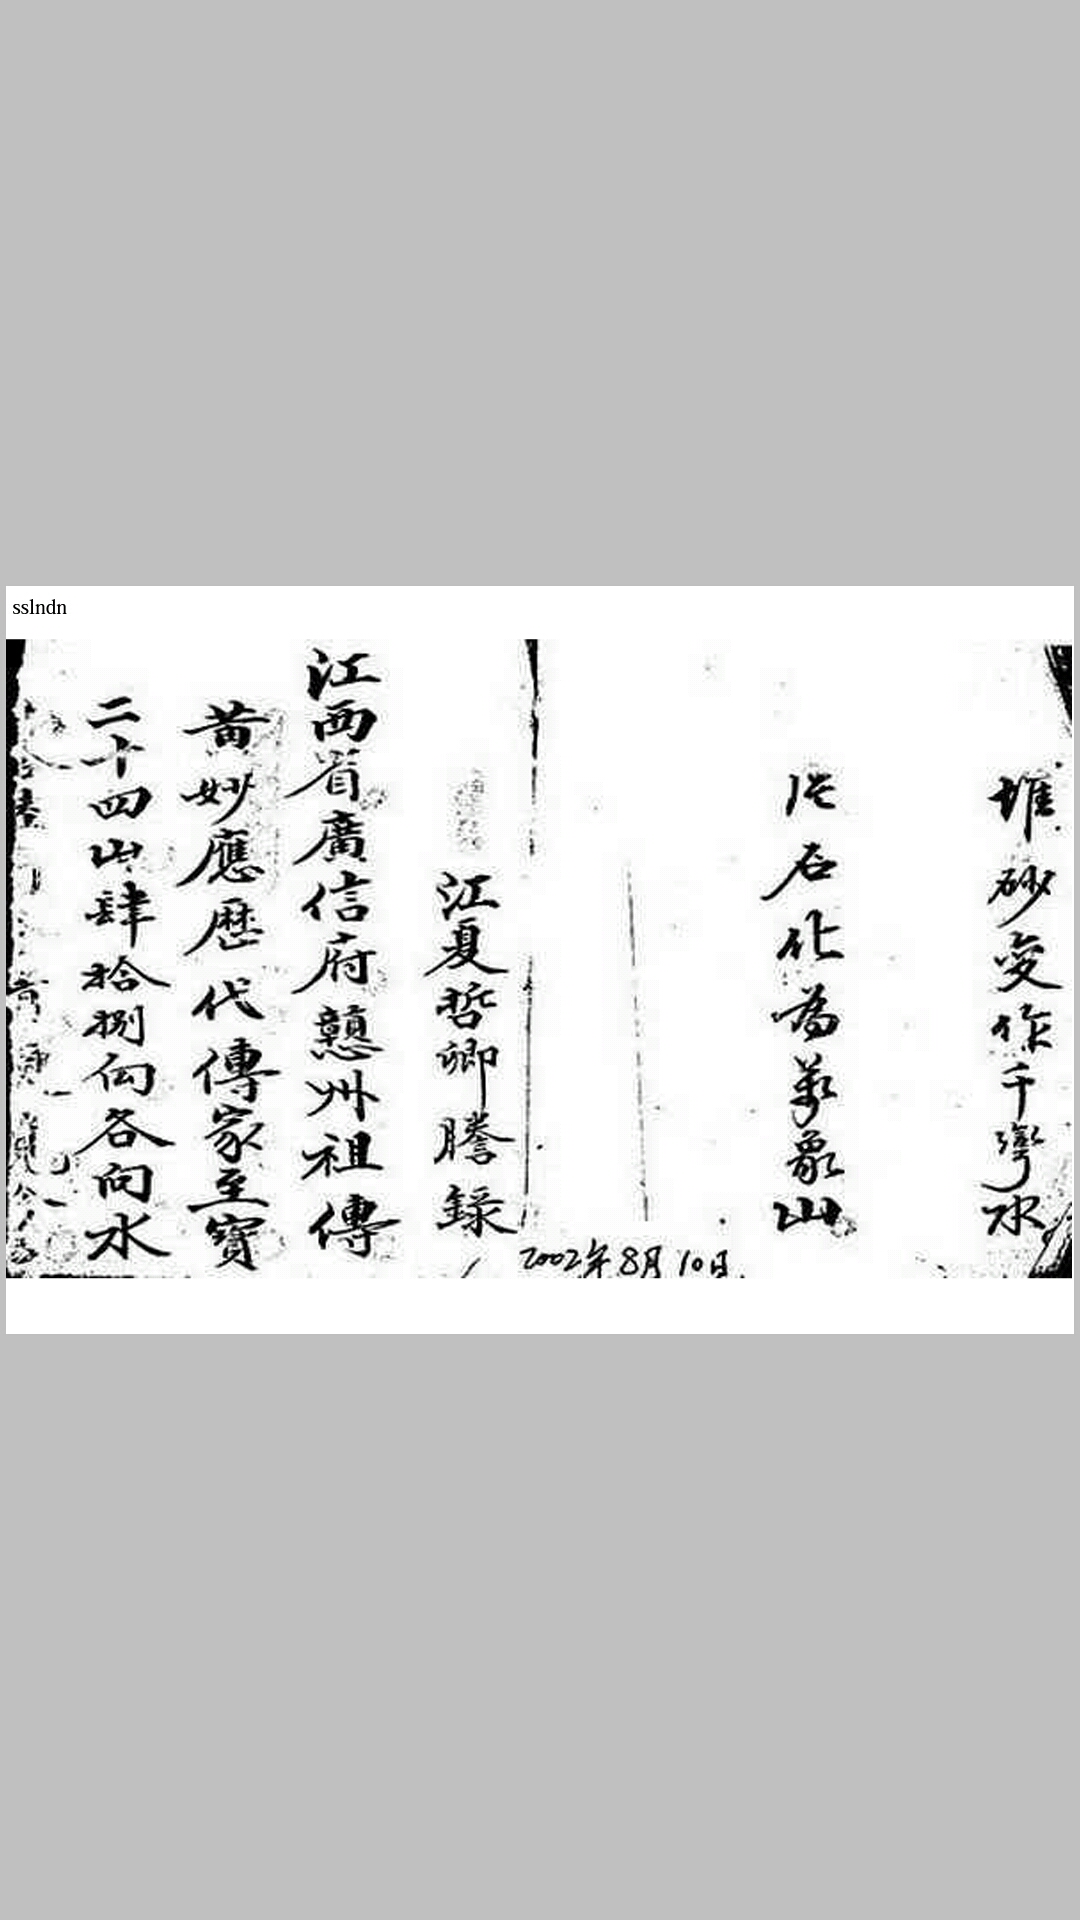 sslndn
堆砂变作千灣水
片石化為萬象山
江夏哲卿謄錄
江西省廣信府戇州祖傳
黃妙應歷代傳家至寶
二十四山肆拾捌向各向水
2002年8月10日